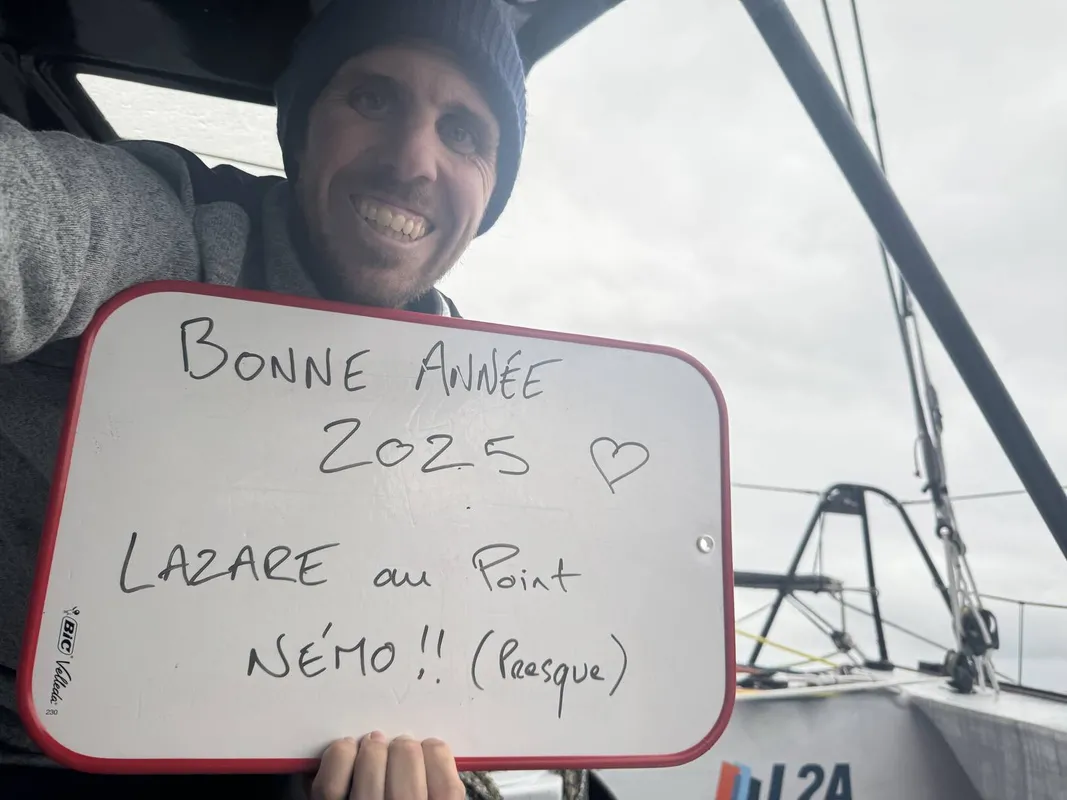 BONNE ANNÉE
2025 ♡
LAZARE au Point
NÉMO !! (Presque)
BIC Velleda
230
L2A